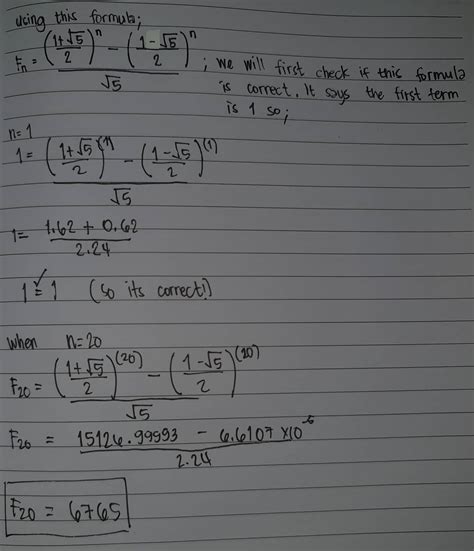 using this formula;
Fn = ((1+√5)/2)^n − ((1−√5)/2)^n / √5 ; we will first check if this formula
is correct, It says the first term
is 1 so;
n=1
1= ((1+√5)/2)^(1) − ((1−√5)/2)^(1) / √5
1= 1.62 + 0.62 / 2.24
1 ≟ 1 (so its correct!)
when n=20
F20 = ((1+√5)/2)^(20) − ((1−√5)/2)^(20) / √5
F20 = 15126.99993 − 6.6107 x10^-5 / 2.24
F20 = 6765